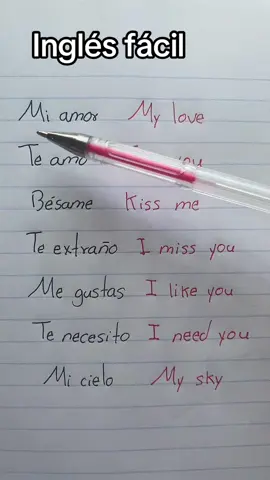 Inglés fácil
Mi amor My love
Te amo you
Bésame Kiss me
Te extraño I miss you
Me gustas I like you
Te necesito I need you
Mi cielo My sky